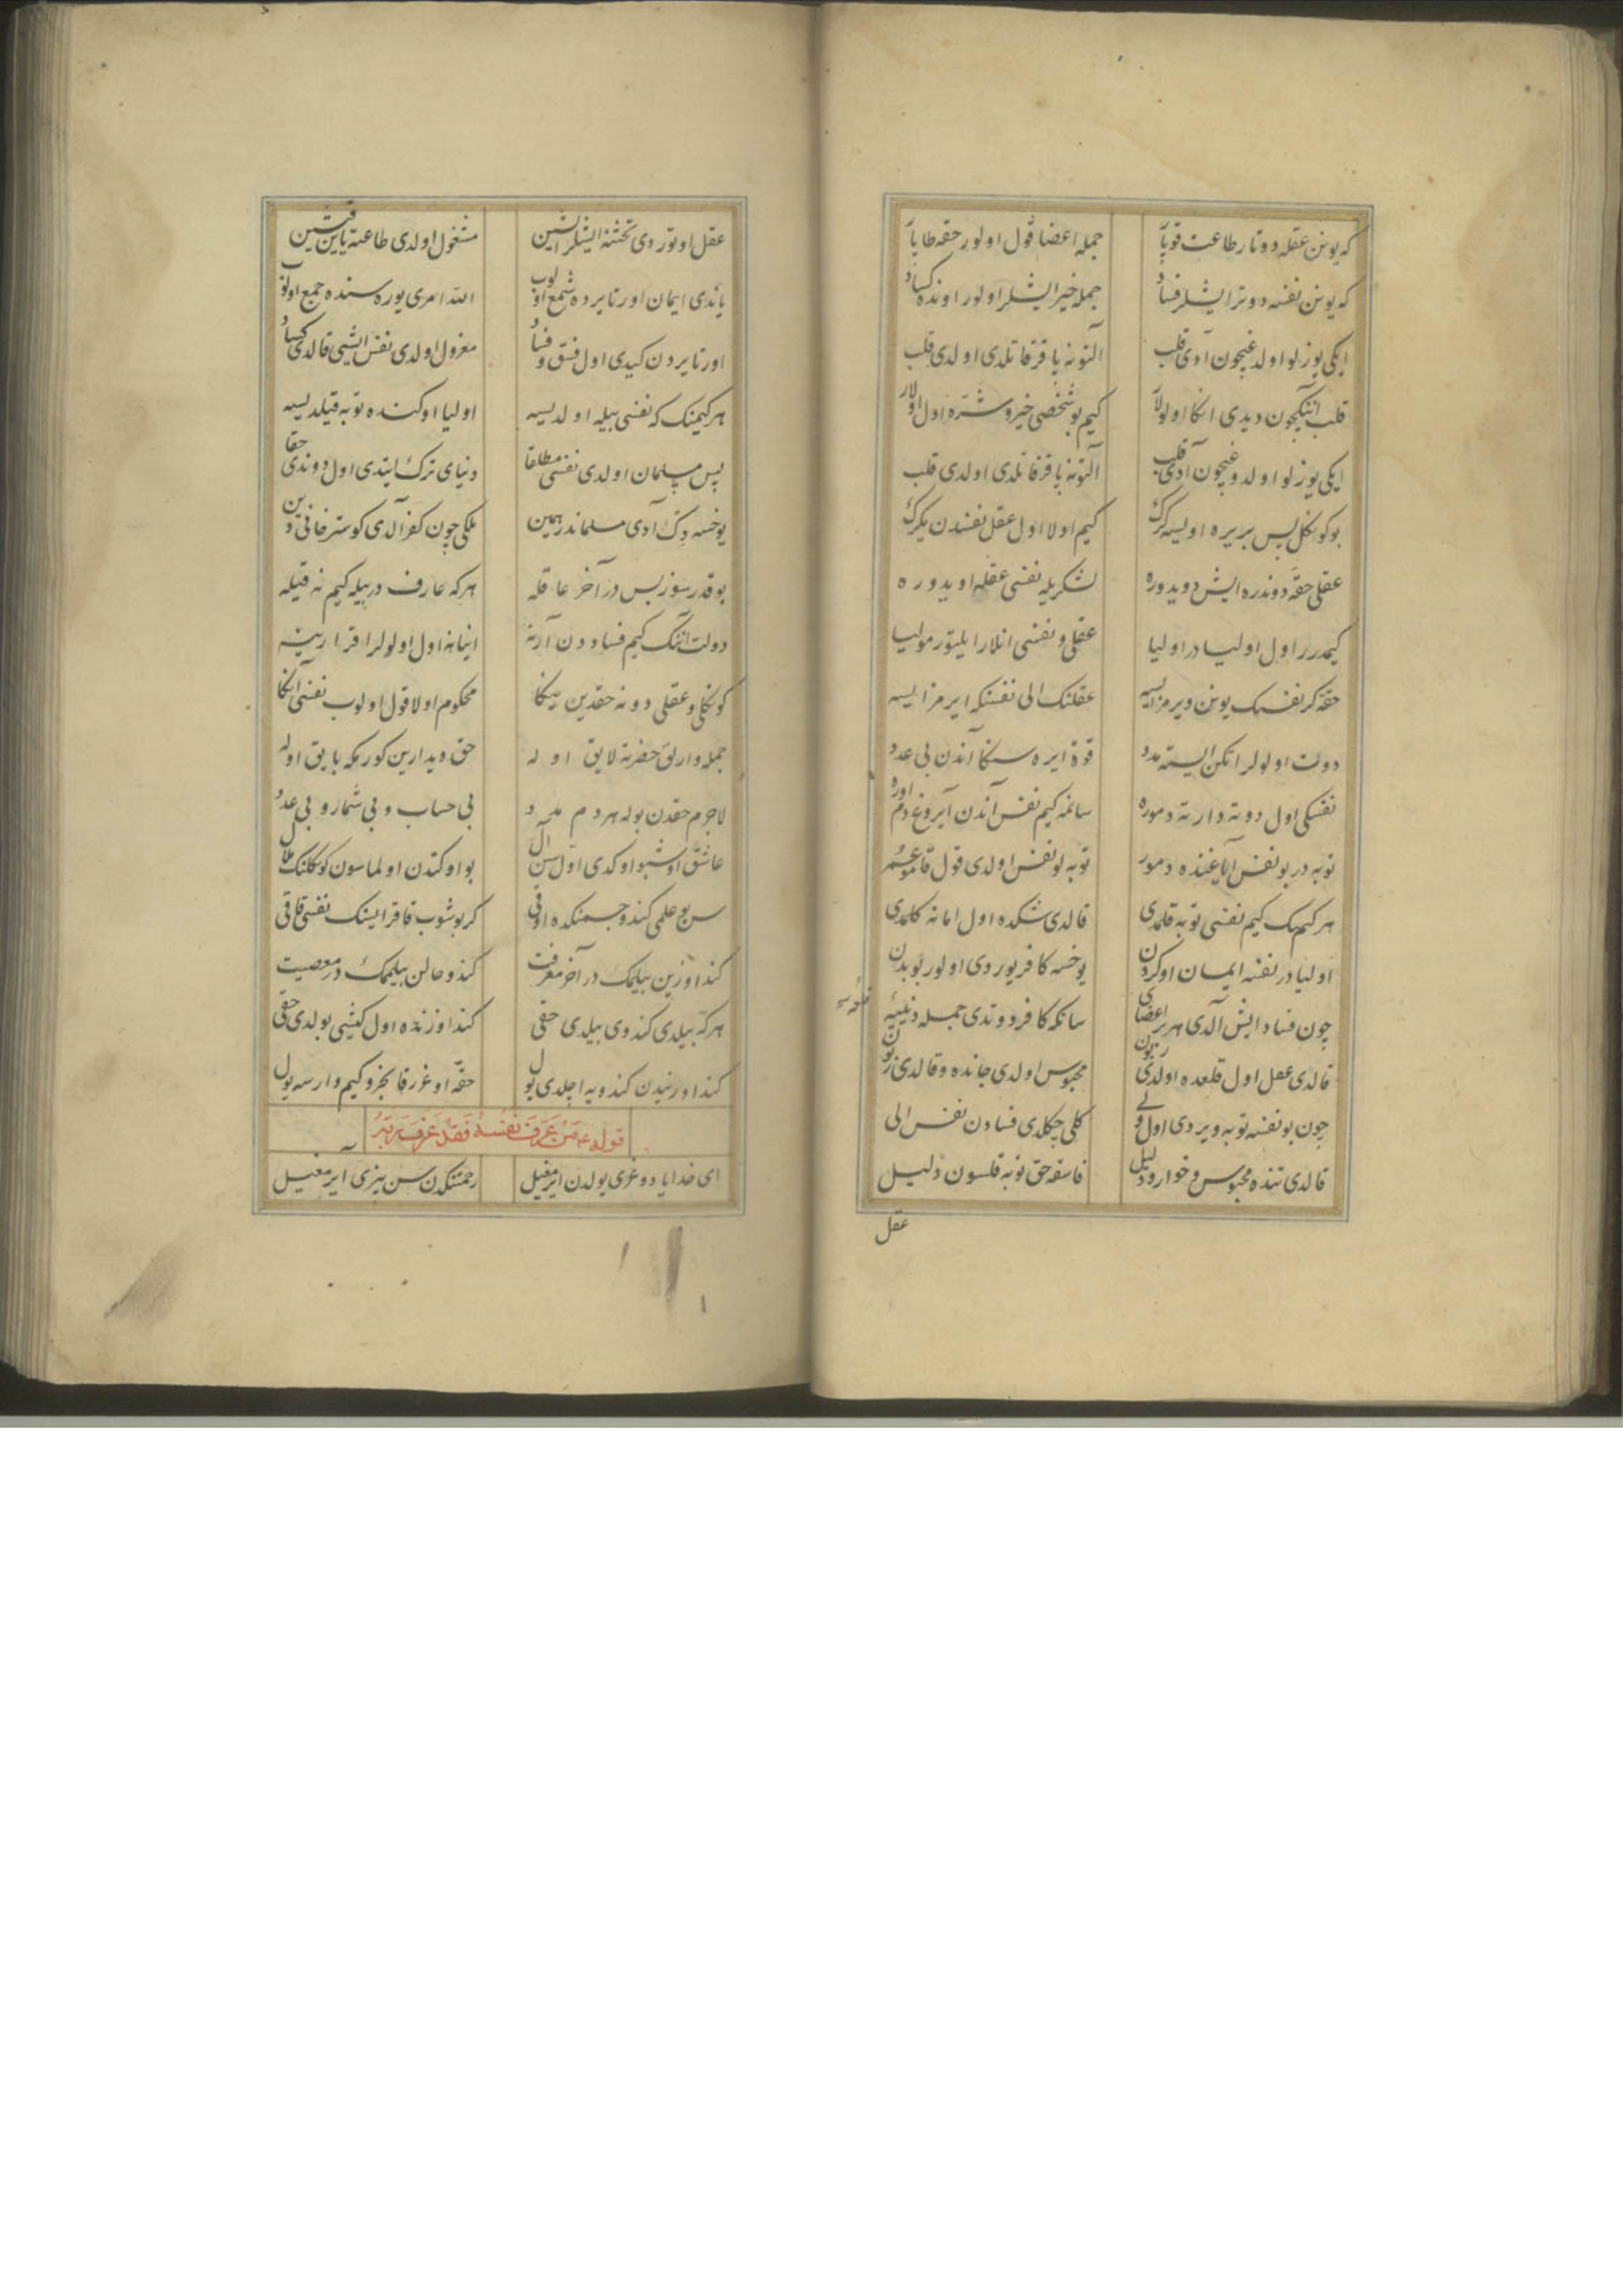 که یوزن عقله دوتار طاعت قوپار جمله اعضا قول اولور حقه طاپار
که یوزن نفسه دوتر ایشلر فساد جمله خیر ایشلر اولور اونده کساد
ایکی یوزلو اولدغیچون آدی قلب آلتونه باقر قاتلدی اولدی قلب
قلب انکیچون دیدی انکا اولولار کیم بو شخصی خیر و شره اول اولار
ایکی یوزلو اولدوغیچون آدی قلب آلتونه باقر قاتلدی اولدی قلب
بو کوکل پس بر یره اولیسه کرک کیم اولا اول عقل نفسدن یکرک
عقلی حقه دوندره ایش دویدوره لشکریله نفسی عقله اویدوره
کیمدرر اول اولیادر اولیا عقلی و نفسی انلار ایلتور مولیا
حقه کر نفسک یوزن ویرمز ایسه عقلنک الی نفسنکه ایرمز ایسه
دوت اولولر اتکن ایسته مدد قوة ایره سنکا آندن بی عدد
نفسکی اول دوته دارته دموره سانمه کیم نفس آندن آیروغ دم اوره
توبه در بو نفس ایاغنده دمور توبه لو نفس اولدی قول قامو عمر
هر کیمک کیم نفسی توبه قلمدی قالدی شکده اول امانه کلمدی
اولیادر نفسه ایمان اوکردن یوخسه کافر یوردی اولور بو بدن
چون فساد ایش آلدی هر بر اعضای سانکه کافر دوتدی جمله دنیایی
قالدی عقل اول قلعده اولدی زبون محبوس اولدی جانده و قالدی زبون
چون بو نفسه توبه ویردی اول ولی کلی چکلدی فساددن نفس الی
قالدی تنده محبوس و خوار و ذلیل فاسقه حق توبه قلسون دلیل
عقل
عقل اوتوردی تختنه ایشلر ایشین مشغول اولدی طاعته یاین قشین
یاندی ایمان اورتا یرده شمع اولوب الله امری یوره سنده جمع اولوب
اورتا یردن کیدی اول فسق و فساد معزول اولدی نفس ایشی قالدی کساد
هر کیمنک که نفسی بیله اولدیسه اولیا اوکنده توبه قیلدیسه
پس مسلمان اولدی نفسی مطلقا دنیای ترک ایتدی اول دوندی حقا
یوخسه دک آدی مسلماندر همین ملکی چون کفر آلدی کوستر خانی دین
بو قدر سوز بس درآخر عاقله هر که عارف در بیله کیم نه قیله
دولت آنک کیم فساددن آرنه اینانه اول اولولر اقرارینه
کوکلی و عقلی دونه حقدین ینکا محکوم اولا قول اولوب نفسی انکا
جمله وارلق حضرته لایق اوله حق دیدارین کورمکه بایق اوله
لاجرم حقدن بوله هر دم مدد بی حساب و بی شمار و بی عدد
عاشق اوشبو اوکدی اول سن آل بو اوکتدن اولماسون کوکلنک ملال
سن بو علمی کندو جسمنکده اوقی کر بوشوب قاقر ایسنک نفسی قاقی
کنداوزین بیلمک درآخر معرفت کندو حالن بیلممک در معصیت
هر که بیلدی کندوی بیلدی حقی کنداوزنده اول کشی بولدی حقی
کنداوزنیدن کندویه اجلدی یول حقه اوغرر قانجرو کیم وارسه یول
قوله عم من عرف نفسه فقد عرف ربه
ای خدایا دوغری یولدن ایرمغیل رحمتکدن سن بیزی ایرمغیل